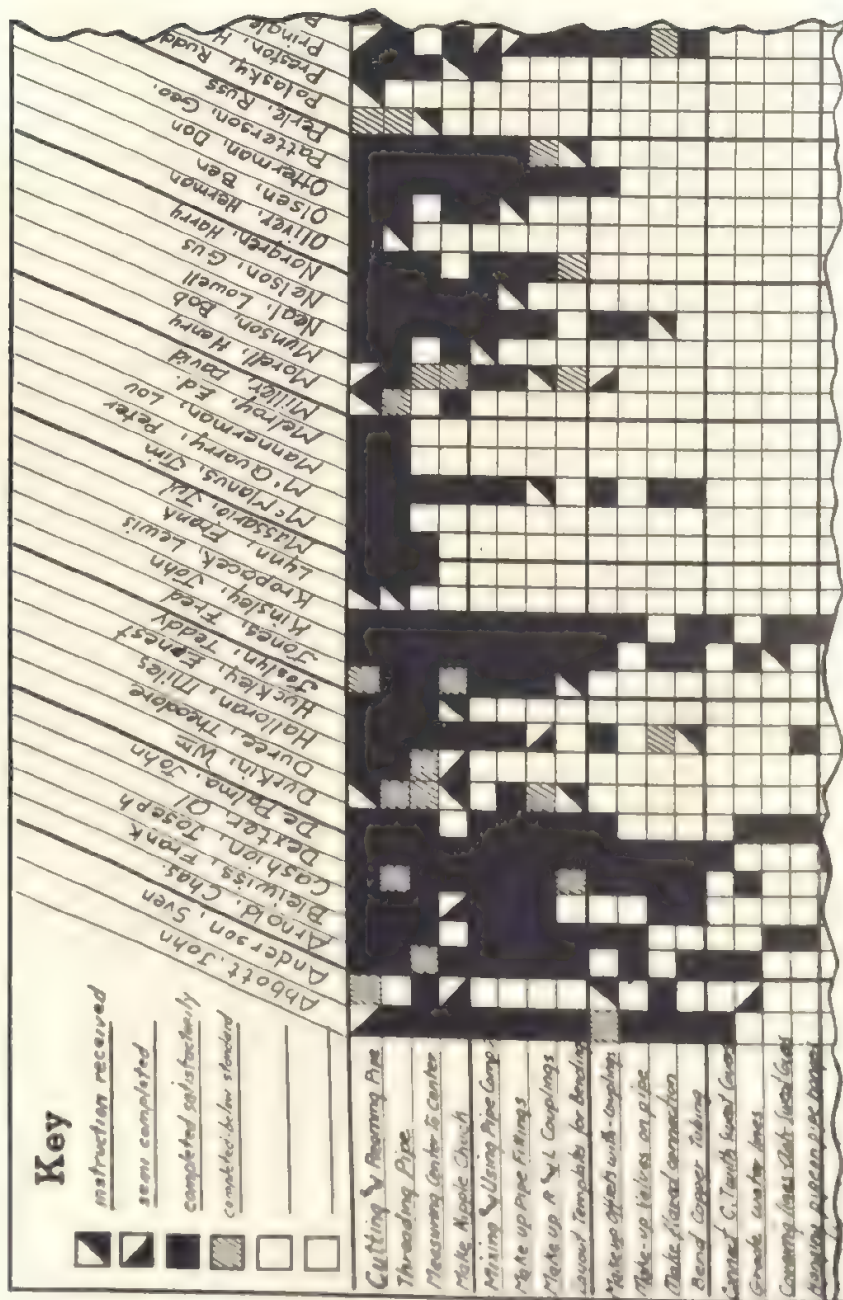 Key
instruction received
semi completed
completed satisfactorily
completed below standard
Abbott, John
Anderson, Sven
Arnold, Chas.
Bleiwiss, Frank
Cashion, Joseph
Dexter, Al
De Palma, John
Durkin, Wm
Duree, Theodore
Halloran, Miles
Huckley, Ernest
Joslyn, Teddy
Jones, Fred
Kinsley, John
Kropacek, Lewis
Lynn, Frank
Mussario, Jul
McManus, Jim
McQuarry, Peter
Mannerman, Lou
Melroy, Ed.
Miller, David
Morell, Henry
Munson, Bob
Neal, Lowell
Nelson, Gus
Norgren, Harry
Oliver, Herman
Olsen, Ben
Otterman, Don
Patterson, Geo.
Perle, Russ
Polasky, Rudd
Preston, H
Pringle
Cutting & Reaming Pipe
Threading Pipe
Measuring Center to Center
Make Nipple Chuck
Mixing & Using Pipe Comp.
Make up Pipe Fittings
Make up R & L Couplings
Layout Templates for Bending
Make up offsets with couplings
Make-up Valves on pipe
Make flared connection
Bend Copper Tubing
Connect C.T. with Sweat
Grade water lines